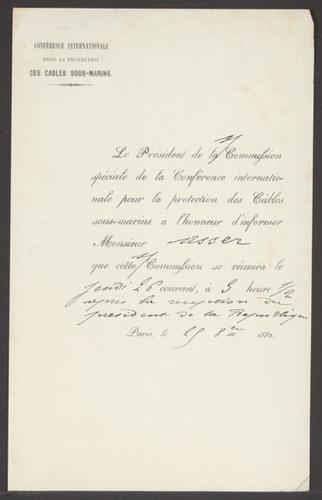 CONFÉRENCE INTERNATIONALE
POUR LA PROTECTION
DES CABLES SOUS-MARINS.
Le Président de la Commission
spéciale de la Conférence internatio-
nale pour la protection des Câbles
sous-marins a l'honneur d'informer
Monsieur Asser
que cette Commission se réunira le
jeudi 26 courant, à 3 heure 1/2
après la reception du
president de la Republique
Paris, le 25 8bre 1882.